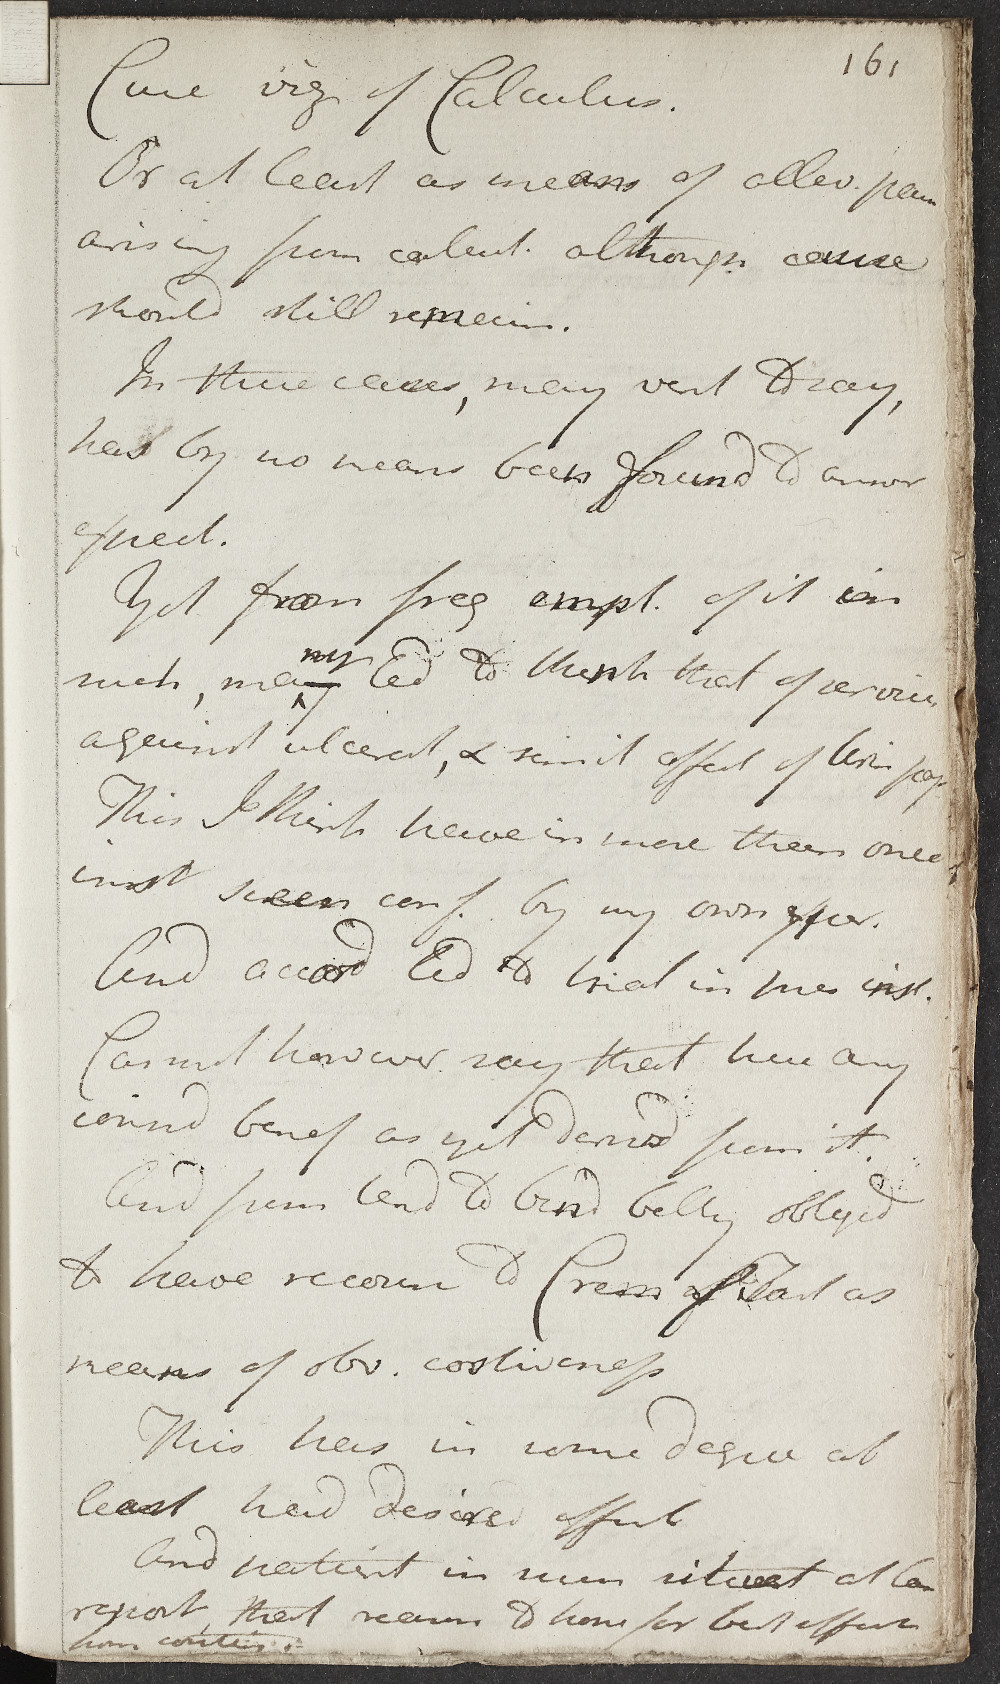 161
Cure viz of Calculus.
Or at least as means of allev. pain
arising from calcul. although cause
should still remain.
In these cases, may vent to say,
has by no means been found to answr
expect.
Yet from freq empl. of it in
such, my led to think that of service
against ulcerat, & simil effect of
This I think have in more than one
inst seen conf. by my own exper.
And accord led to trial in pres inst.
Cannot however say that here any
consid benef as yet derived from it.
And from tend to bind belly obliged
to have recourse to Crem of Tart as
means of obv. costiveness
This has in some degree at
least had desired effect
And patient in situat at
report that reason to hope for best effects
from contin.